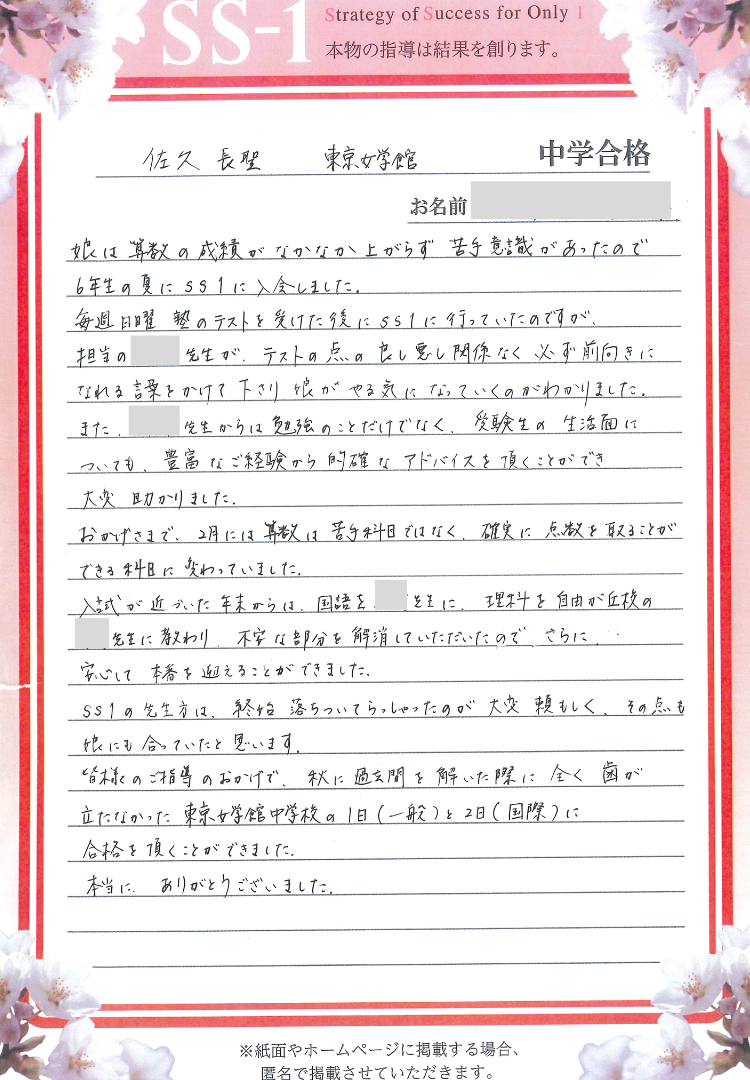 SS-1
Strategy of Success for Only 1
本物の指導は結果を創ります。
佐久長聖 東京女学館 中学合格
お名前
娘は算数の成績がなかなか上がらず苦手意識があったので
6年生の夏にSS1に入会しました。
毎週日曜 塾のテストを受けた後にSS1に行っていたのですが、
担当の 先生が、テストの点の良し悪し関係なく必ず前向きに
なれる言葉をかけて下さり 娘がやる気になっていくのがわかりました。
また、 先生からは勉強のことだけでなく、受験生の生活面に
ついても、豊富なご経験から的確なアドバイスを頂くことができ
大変助かりました。
おかげさまで、2月には算数は苦手科目ではなく、確実に点数を取ることが
できる科目に変わっていました。
入試が近づいた年末からは、国語を 先生に、理科を自由が丘校の
先生に教わり、不安な部分を解消していただいたので、さらに
安心して本番を迎えることができました。
SS1の先生方は、終始落ちついてらっしゃったのが大変頼もしく、その点も
娘にも合っていたと思います。
皆様のご指導のおかげで、秋に過去問を解いた際に全く歯が
立たなかった東京女学館中学校の1日(一般)と2日(国際)に
合格を頂くことができました。
本当に、ありがとうございました。
※紙面やホームページに掲載する場合、
匿名で掲載させていただきます。